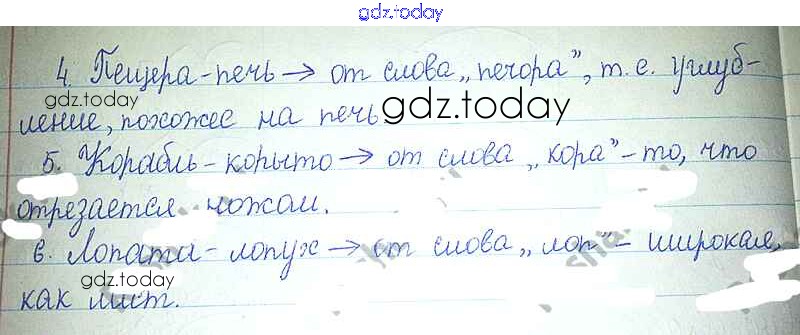 gdz.today
4. Пещера - печь → от слова „печора”, т.е. углуб-
gdz.today
ление, похожее на печь gdz.today
5. Корабль - корыто → от слова „кора” - то, что
отрезается ножом.
6. Лопата - лопух → от слова „лоп” - широкая,
gdz.today
как лист.